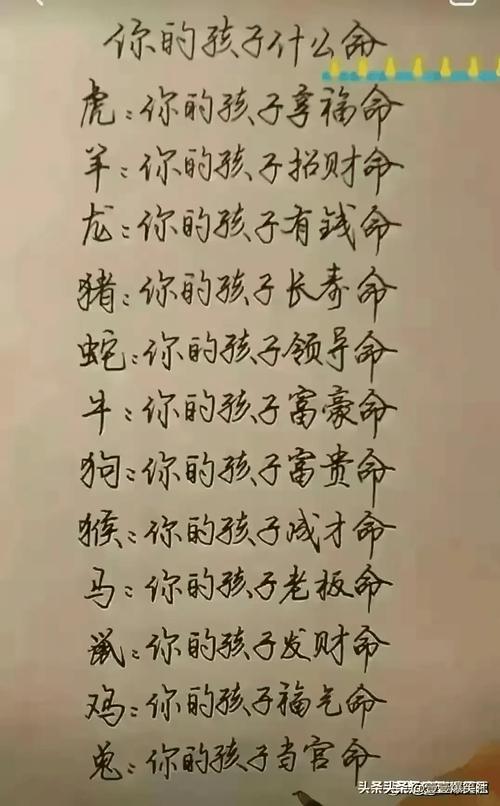 你的孩子什么命
虎:你的孩子享福命
羊:你的孩子招财命
龙:你的孩子有钱命
猪:你的孩子长寿命
蛇:你的孩子领导命
牛:你的孩子富豪命
狗:你的孩子富贵命
猴:你的孩子成才命
马:你的孩子老板命
鼠:你的孩子发财命
鸡:你的孩子福气命
兔:你的孩子当官命
头条